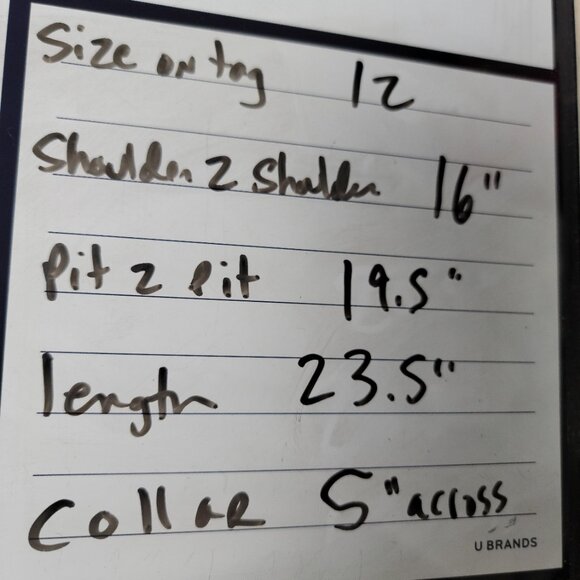 Size on tag 12
Shoulder 2 Shoulder 16"
Pit 2 Pit 19.5"
length 23.5"
Collar 5" across
U BRANDS